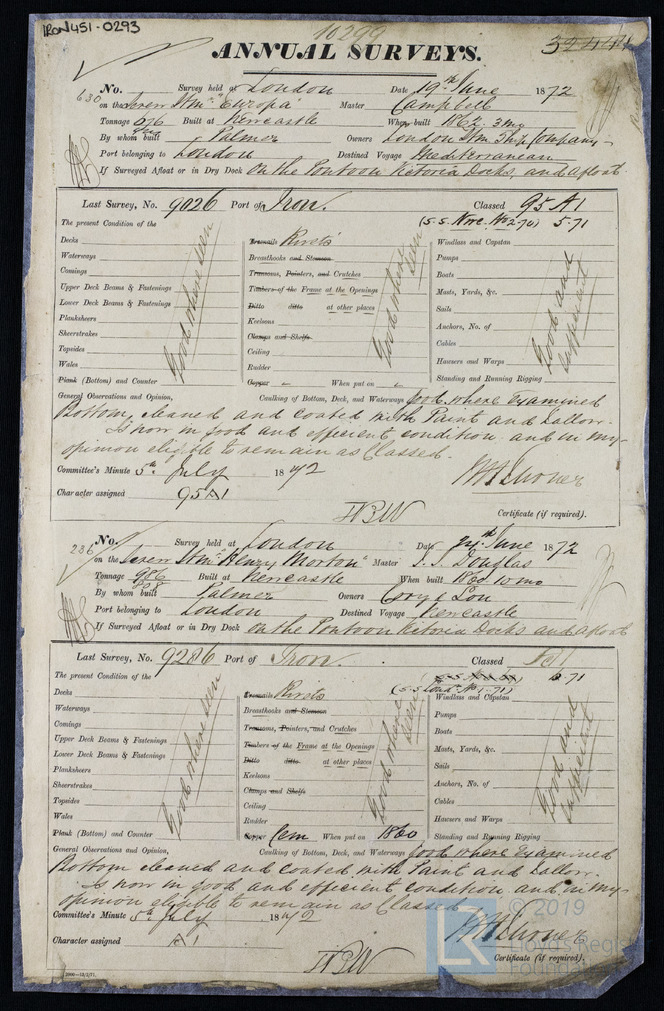 IRON451-0293
10299
ANNUAL SURVEYS.
630
No. Survey held at London Date 19th June 1872
on the Screw Stmr "Europa" Master Campbell
Tonnage Built at Newcastle When built 1862. 3 mo
By whom built Palmer Owners London Stm Ship Company
Port belonging to London Destined Voyage Mediterranean
If Surveyed Afloat or in Dry Dock On the Pontoon Victoria Docks, and afloat
Last Survey, No. 9026 Port of Iron. Classed 95 A1
(S.S. Nwc. No 2 70) 5.71
The present Condition of the
Decks
Waterways
Comings
Upper Deck Beams & Fastenings
Lower Deck Beams & Fastenings
Planksheers
Sheerstrakes
Topsides
Wales
Plank (Bottom) and Counter
Good where seen
Treenails Rivets
Breasthooks and Stemson
Transoms, Pointers, and Crutches
Timbers of the Frame at the Openings
Ditto ditto at other places
Keelsons
Clamps and Shelfs
Ceiling
Rudder
Copper When put on
Good where seen
Windlass and Capstan
Pumps
Boats
Masts, Yards, &c.
Sails
Anchors, No. of
Cables
Hawsers and Warps
Standing and Running Rigging
Good and sufficient
General Observations and Opinion, Caulking of Bottom, Deck, and Waterways Good where Examined
Bottom, cleaned and coated with Paint and Tallow.
Is now in good and efficient condition and in my
opinion eligible to remain as Classed.
Committee's Minute 5th July 1872
Character assigned 95 A1
Certificate (if required).
236
No. Survey held at London Date 24th June 1872
on the Screw Stmr "Henry Morton" Master Douglas
Tonnage 986 Built at Newcastle When built 1860 10 mo
By whom built Palmer Owners Cory & Son
Port belonging to London Destined Voyage Newcastle
If Surveyed Afloat or in Dry Dock On the Pontoon Victoria Docks and afloat
Last Survey, No. 9286 Port of Iron. Classed A1
(S.S. Lond. No 1-71) 12.71
The present Condition of the
Decks
Waterways
Comings
Upper Deck Beams & Fastenings
Lower Deck Beams & Fastenings
Planksheers
Sheerstrakes
Topsides
Wales
Plank (Bottom) and Counter
Good where seen
Treenails Rivets
Breasthooks and Stemson
Transoms, Pointers, and Crutches
Timbers of the Frame at the Openings
Ditto ditto at other places
Keelsons
Clamps and Shelfs
Ceiling
Rudder
Copper Cem When put on 1860
Good where seen
Windlass and Capstan
Pumps
Boats
Masts, Yards, &c.
Sails
Anchors, No. of
Cables
Hawsers and Warps
Standing and Running Rigging
Good and sufficient
General Observations and Opinion, Caulking of Bottom, Deck, and Waterways Good where Examined
Bottom cleaned and coated with Paint and Tallow.
Is now in good and efficient condition and in my
opinion eligible to remain as Classed
Committee's Minute 5th July 1872
Character assigned A1
Certificate (if required).
© 2019
Lloyd's Register
Foundation